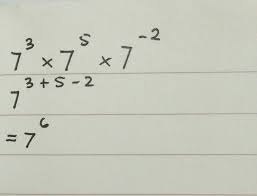 7³ × 7⁵ × 7⁻²
7³⁺⁵⁻²
= 7⁶